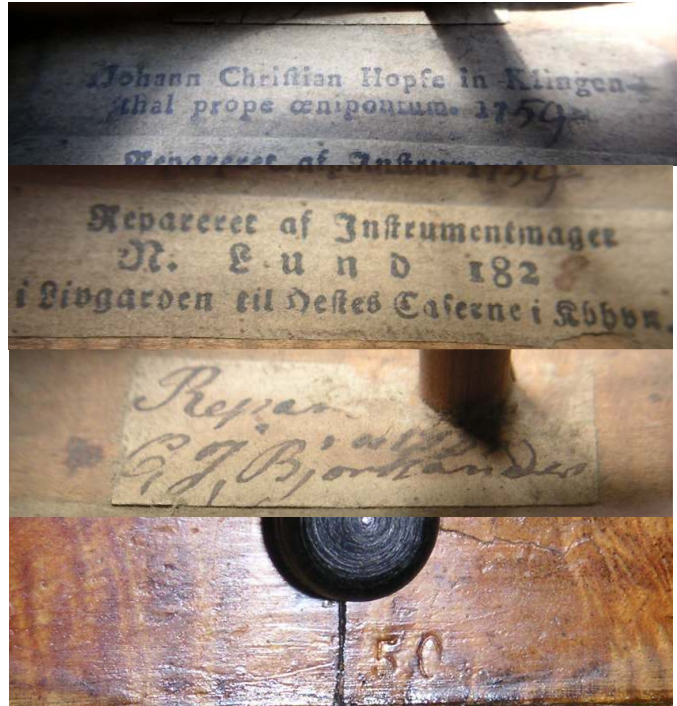 Johann Christian Hopfe in Klingen-
thal prope œnipontum. 1754
Repareret af Instrum
Repareret af Instrumentmager
N. Lund 1828
i Livgarden til Hestes Caserne i Kbhvn.
Repar
C, J, Bjorklander
50